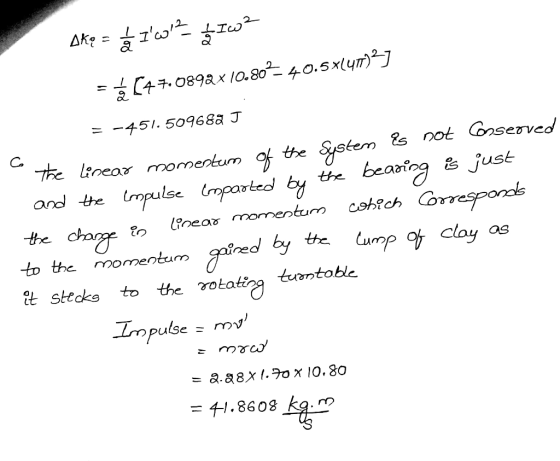 ΔK₂ = 1/2 I'ω'² - 1/2 Iω²
= 1/2 [47.0892 × 10.80² - 40.5 × (4π)²]
= -451.509682 J
C. The linear momentum of the System is not Conserved
and the Impulse Imparted by the bearing is just
the change in linear momentum which Corresponds
to the momentum gained by the lump of clay as
it sticks to the rotating turntable
Impulse = mv'
= mrω'
= 2.28 × 1.70 × 10.80
= 41.8608 kg.m/s